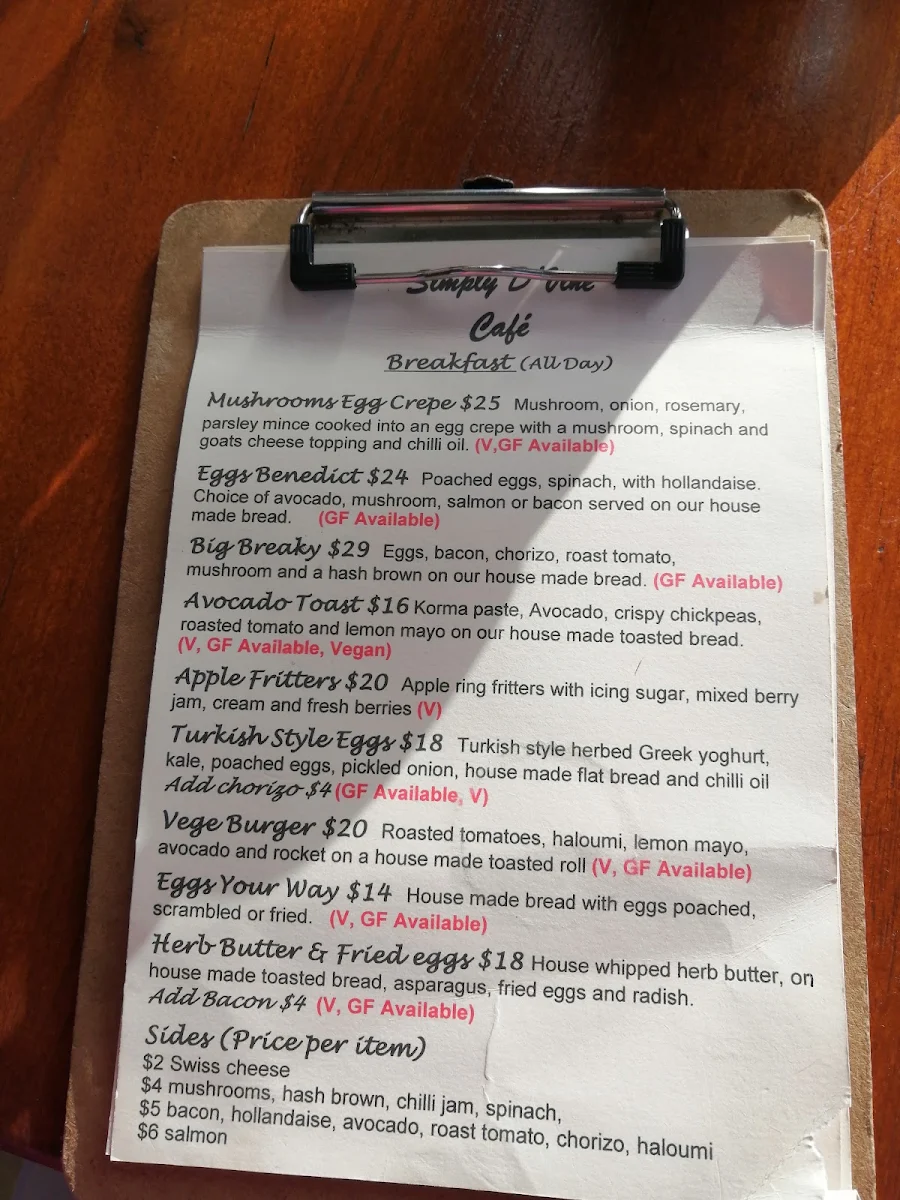 Simply D'Vine
Café
Breakfast (All Day)
Mushrooms Egg Crepe $25 Mushroom, onion, rosemary,
parsley mince cooked into an egg crepe with a mushroom, spinach and
goats cheese topping and chilli oil. (V,GF Available)
Eggs Benedict $24 Poached eggs, spinach, with hollandaise.
Choice of avocado, mushroom, salmon or bacon served on our house
made bread. (GF Available)
Big Breaky $29 Eggs, bacon, chorizo, roast tomato,
mushroom and a hash brown on our house made bread. (GF Available)
Avocado Toast $16 Korma paste, Avocado, crispy chickpeas,
roasted tomato and lemon mayo on our house made toasted bread.
(V, GF Available, Vegan)
Apple Fritters $20 Apple ring fritters with icing sugar, mixed berry
jam, cream and fresh berries (V)
Turkish Style Eggs $18 Turkish style herbed Greek yoghurt,
kale, poached eggs, pickled onion, house made flat bread and chilli oil
Add chorizo $4 (GF Available, V)
Vege Burger $20 Roasted tomatoes, haloumi, lemon mayo,
avocado and rocket on a house made toasted roll (V, GF Available)
Eggs Your Way $14 House made bread with eggs poached,
scrambled or fried. (V, GF Available)
Herb Butter & Fried eggs $18 House whipped herb butter, on
house made toasted bread, asparagus, fried eggs and radish.
Add Bacon $4 (V, GF Available)
Sides (Price per item)
$2 Swiss cheese
$4 mushrooms, hash brown, chilli jam, spinach,
$5 bacon, hollandaise, avocado, roast tomato, chorizo, haloumi
$6 salmon